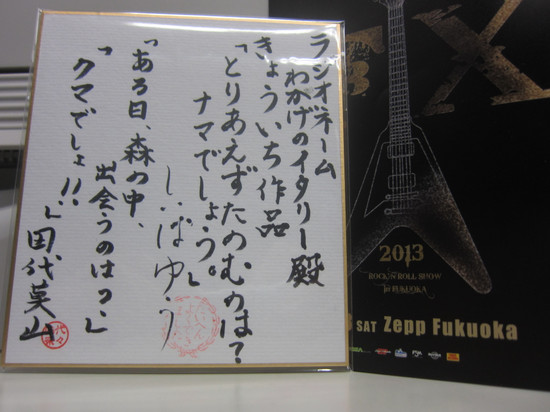 ラジオネーム
わかげのイタリー殿
きょういち作品
「とりあえずたのむのは？
ナマでしょう。」
しばゆう
「ある日、森の中、
出会うのはっ」
「クマでしょ!!」
田代英山
X
2013
ROCK'N ROLL SHOW
in FUKUOKA
SAT Zepp Fukuoka